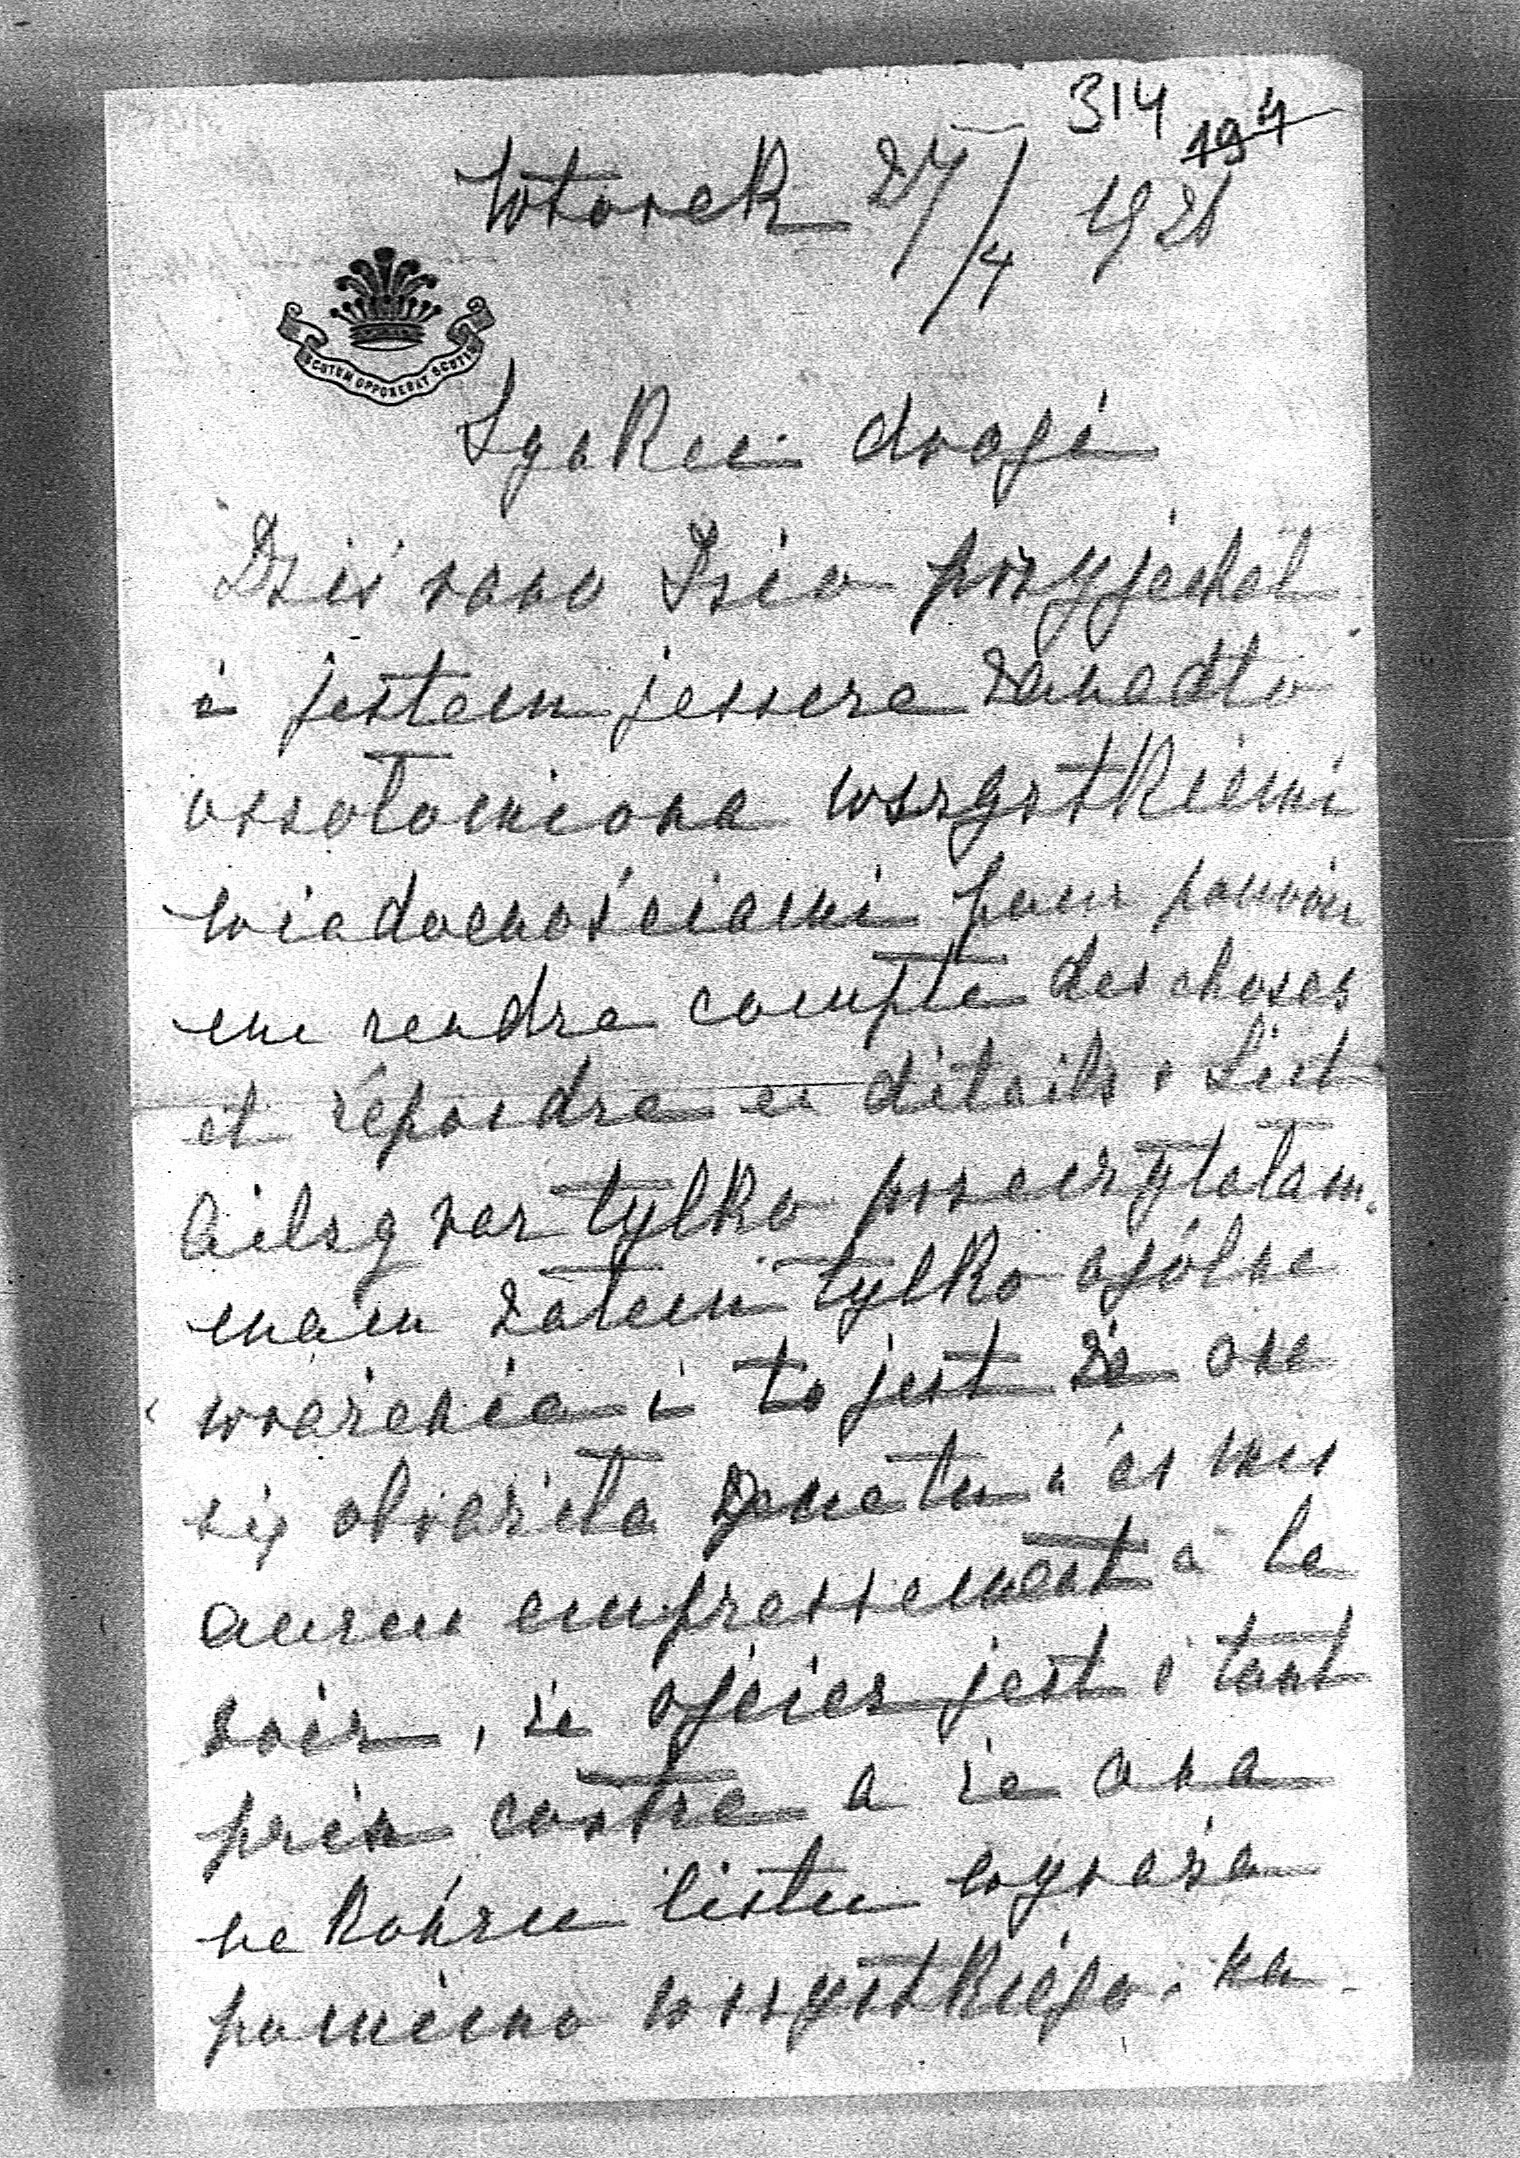 314
194
Wtorek 27/4 1926
SCUTUM OPPONEBAT SCUTIS
Synku drogi
Dziś rano Izio przyjechał
i jestem jeszcze zanadto
oszołomiona wszystkiemi
wiadomościami pour pouvoir
me rendre compte des choses
et répondre en détails. List
raz tylko przeczytałam.
mam zatem tylko ogólne
wrażenie i to jest że one
się obraziła
empressement à la
voir, że ojciec jest
contre a że ona
na końcu listu wyraża
pomimo wszystkiego na